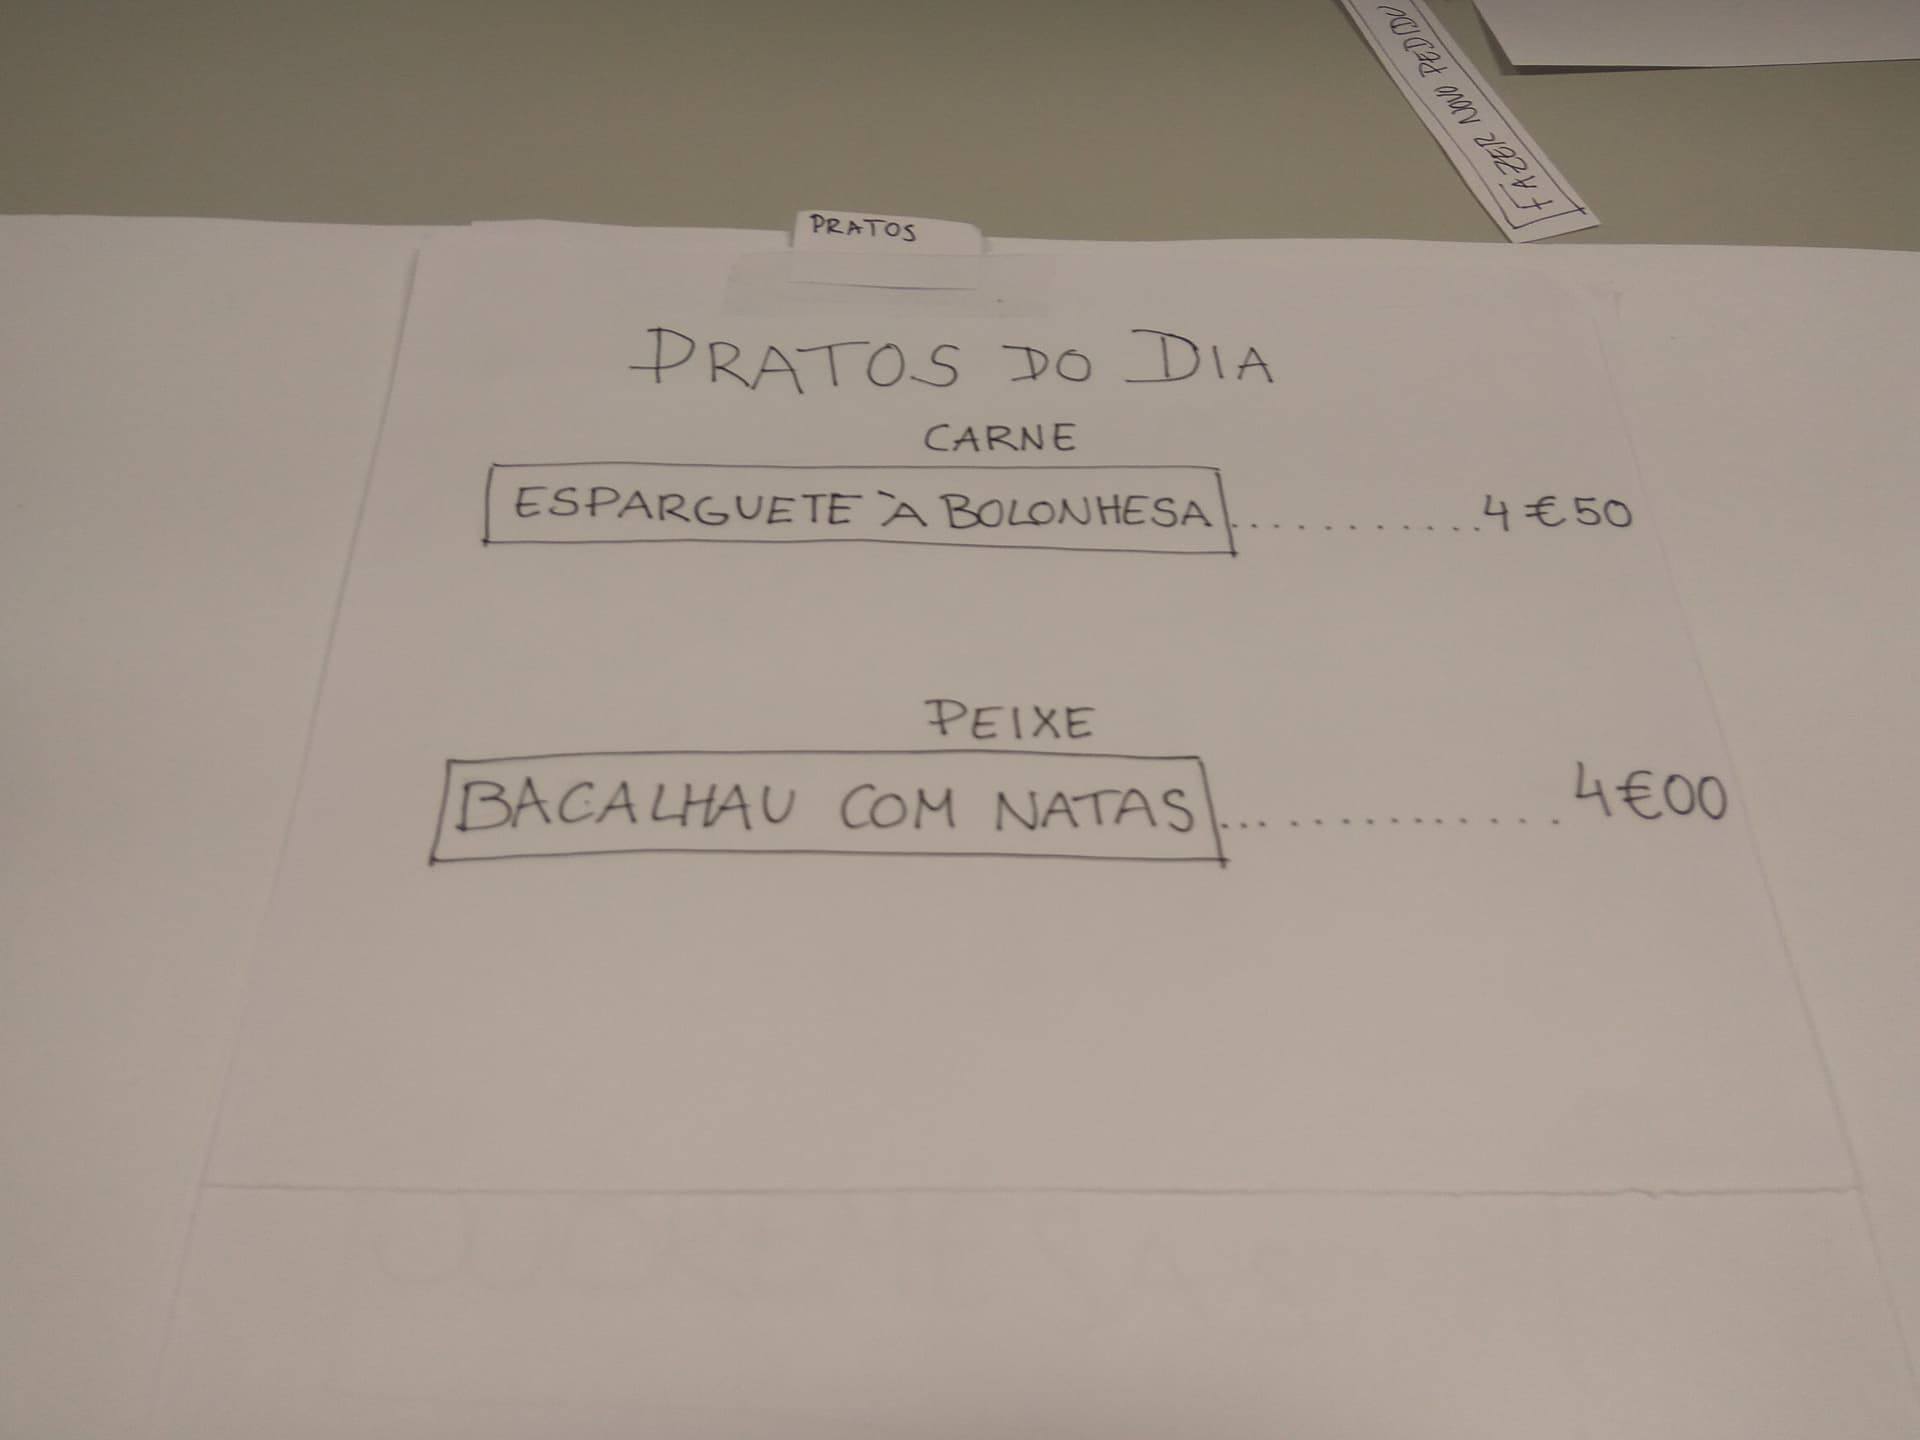 FAZER NOVO PEDIDO
PRATOS
PRATOS DO DIA
CARNE
ESPARGUETE À BOLONHESA ........... 4€50
PEIXE
BACALHAU COM NATAS .............. 4€00